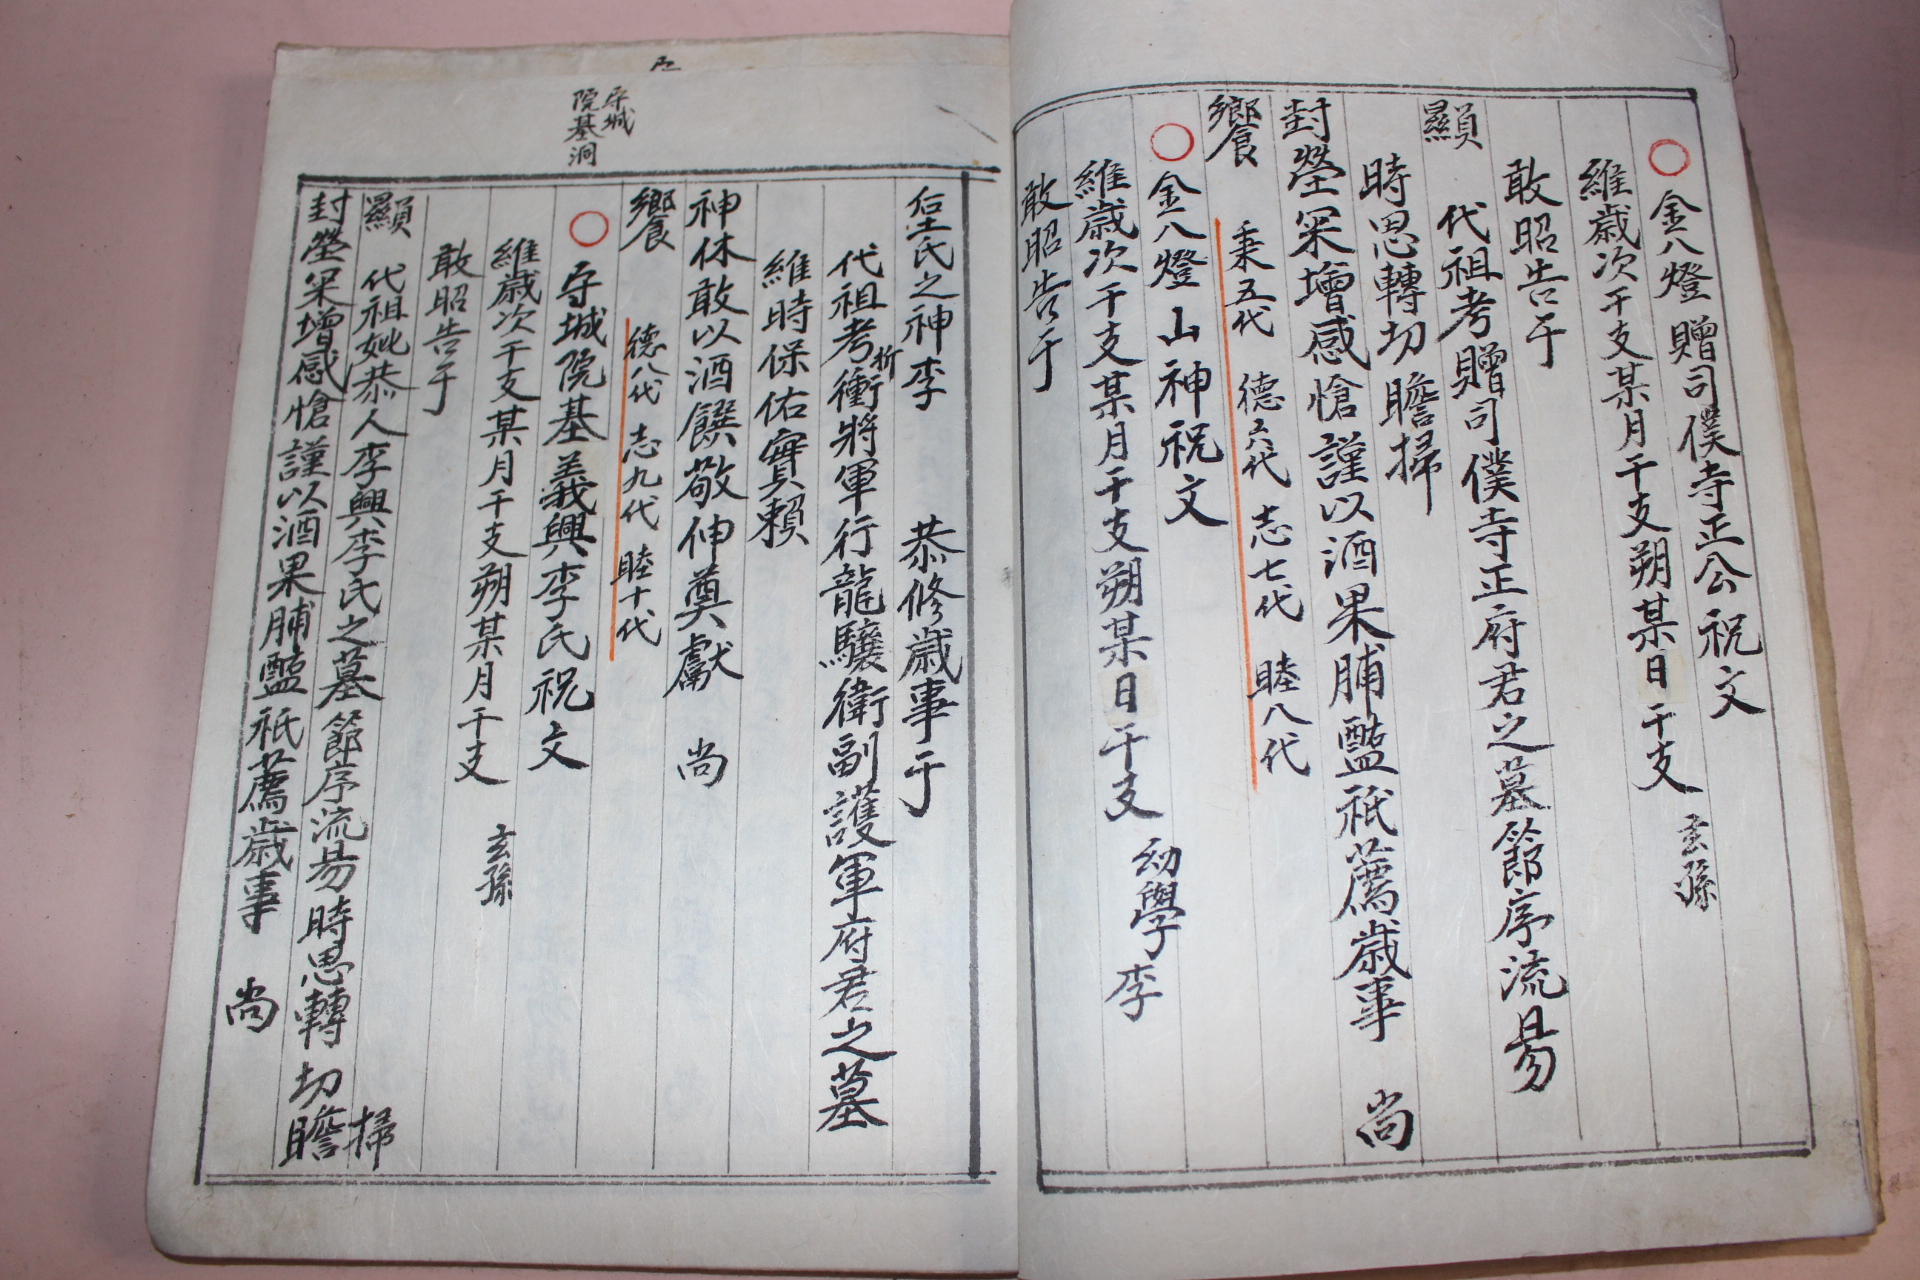 金八燈 贈司僕寺正公祝文
維歲次干支某月干支朔某日干支 玄孫
敢昭告于
顯 代祖考贈司僕寺正府君之墓節序流易
時思轉切瞻掃
封塋冞增感愴謹以酒果脯醢祇薦歲事 尚
饗 秉五代 德六代 志七代 睦八代
金八燈山神祝文
維歲次干支某月干支朔某日干支 幼學 李
敢昭告于
后土氏之神李 恭修歲事于
代祖考折衝將軍行龍驤衛副護軍府君之墓
維時保佑實賴
神休敢以酒饌敬伸奠獻 尚
饗 德八代 志九代 睦十代
守城院基義興李氏祝文
守城院基洞
維歲次干支某月干支朔某月干支 玄孫
敢昭告于
顯 代祖妣恭人李興李氏之墓節序流易時思轉切瞻掃
封塋冞增感愴謹以酒果脯醢祇薦歲事 尚